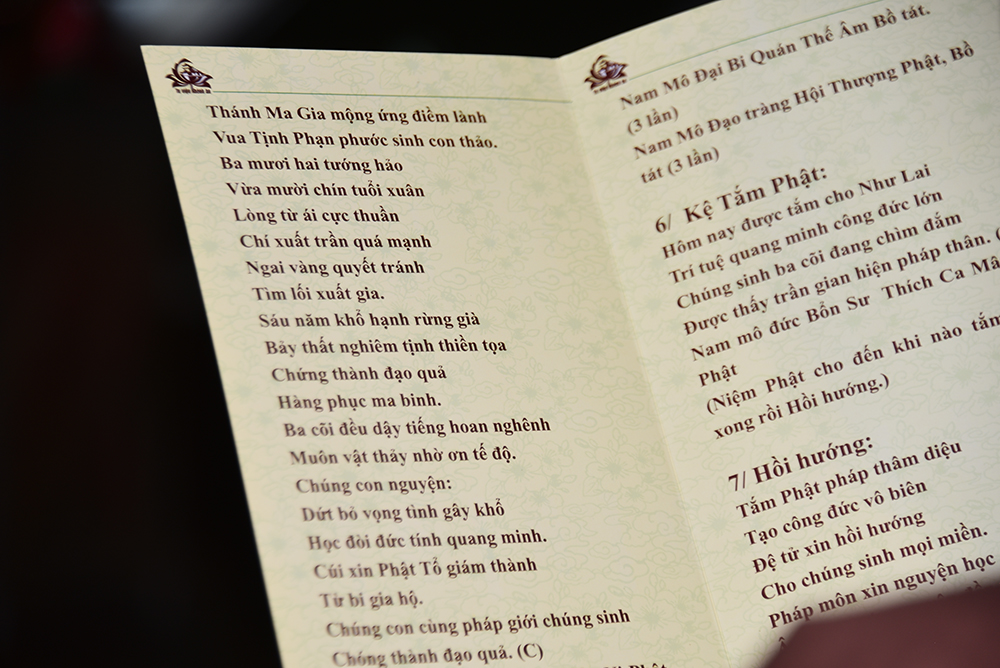 Thánh Ma Gia mộng ứng điềm lành
Vua Tịnh Phạn phước sinh con thảo.
Ba mươi hai tướng hảo
Vừa mười chín tuổi xuân
Lòng từ ái cực thuần
Chí xuất trần quá mạnh
Ngai vàng quyết tránh
Tìm lối xuất gia.
Sáu năm khổ hạnh rừng già
Bảy thất nghiêm tịnh thiền tọa
Chứng thành đạo quả
Hàng phục ma binh.
Ba cõi đều dậy tiếng hoan nghênh
Muôn vật thảy nhờ ơn tế độ.
Chúng con nguyện:
Dứt bỏ vọng tình gây khổ
Học đòi đức tính quang minh.
Cúi xin Phật Tổ giám thành
Từ bi gia hộ.
Chúng con cùng pháp giới chúng sinh
Chóng thành đạo quả. (C)
Nam Mô Đại Bi Quán Thế Âm Bồ tát.
(3 lần)
Nam Mô Đạo tràng Hội Thượng Phật, Bồ
tát (3 lần)
6/ Kệ Tắm Phật:
Hôm nay được tắm cho Như Lai
Trí tuệ quang minh công đức lớn
Chúng sinh ba cõi đang chìm đắm
Được thấy trần gian hiện pháp thân. (
Nam mô đức Bổn Sư Thích Ca Mâ
Phật
(Niệm Phật cho đến khi nào tắm
xong rồi Hồi hướng.)
7/ Hồi hướng:
Tắm Phật pháp thâm diệu
Tạo công đức vô biên
Đệ tử xin hồi hướng
Cho chúng sinh mọi miền.
Pháp môn xin nguyện học